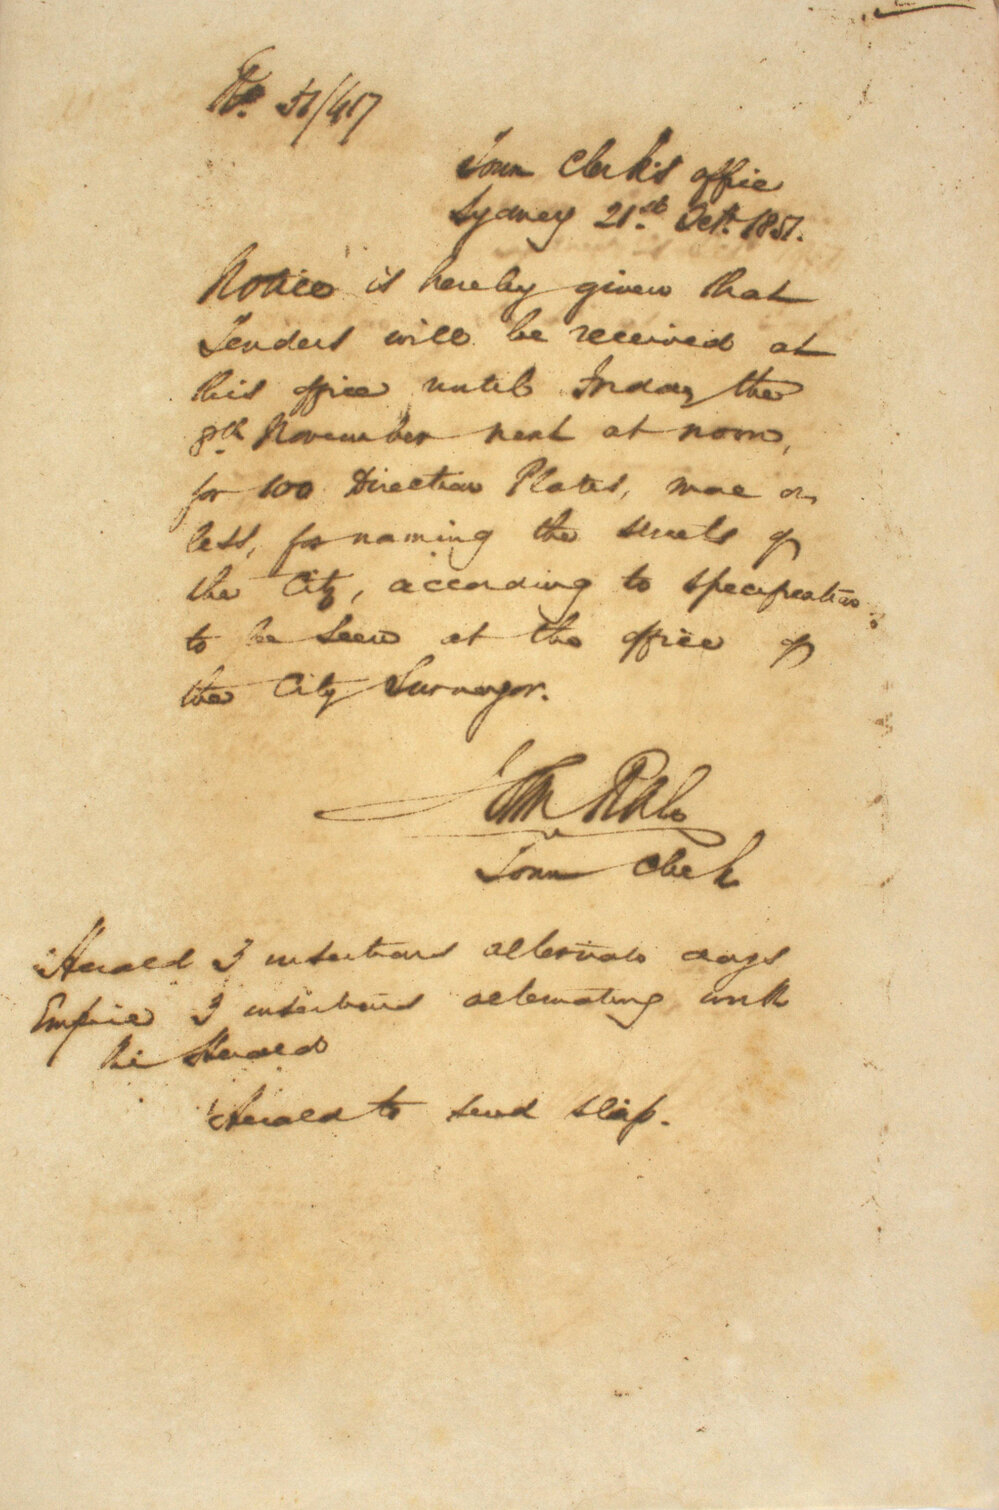 No. 51/417
Town Clerk's office
Sydney 21st. Octr. 1851.
Notice is hereby given that
Tenders will be received at
this office until Friday the
8th. November next at noon,
for 100 Direction Plates, more or
less, for naming the streets of
the City, according to specification
to be seen at the office of
the City Surveyor.
John Rule
Town Clerk
Herald 3 insertions alternate days
Empire 3 insertions alternating with
the Herald
Herald to send slip.